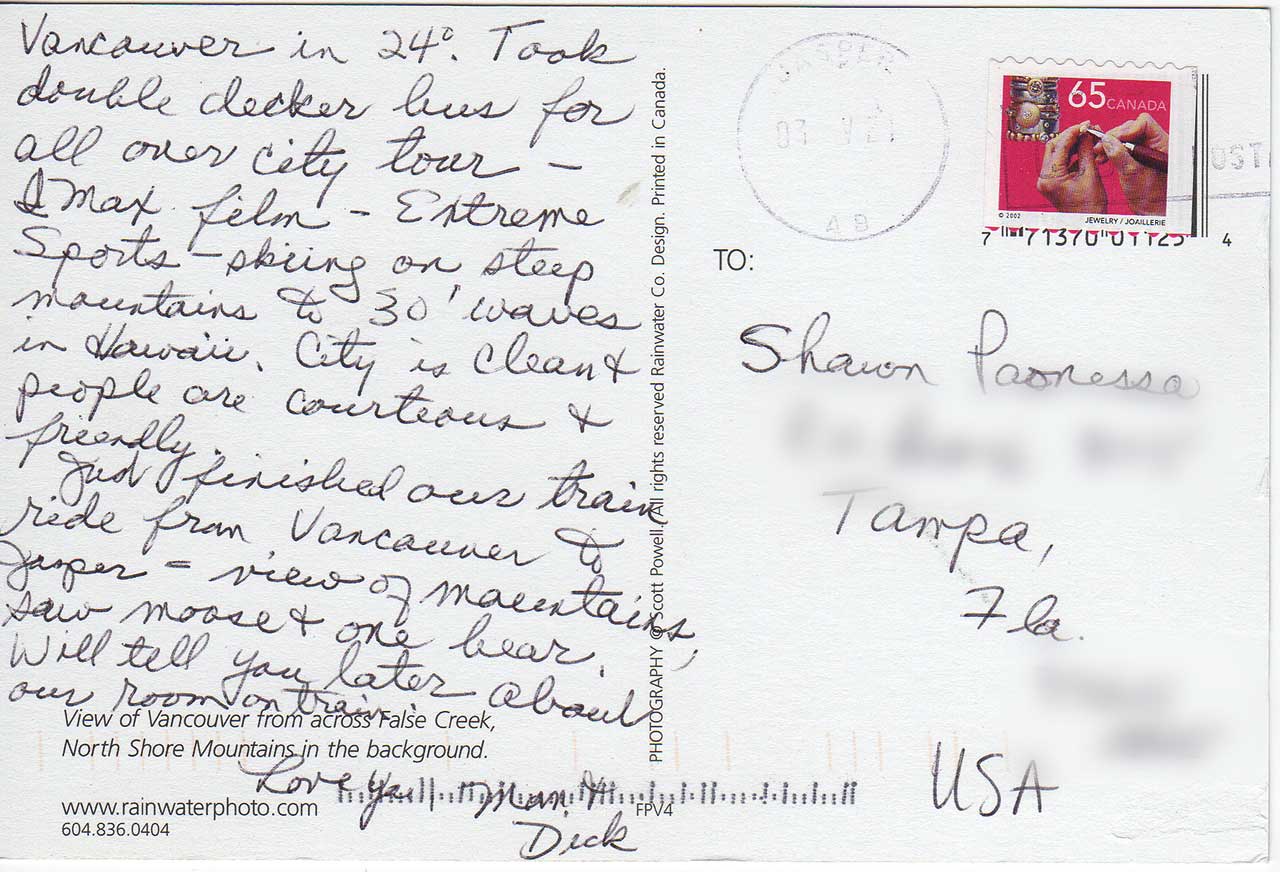 Vancouver in 24°. Took
double decker bus for
all over city tour –
I Max film – Extreme
Sports – skiing on steep
mountains to 30' waves
in Hawaii. City is clean &
people are courteous &
friendly.
Just finished our train
ride from Vancouver to
Jasper – view of mountains,
saw moose & one bear.
Will tell you later about
our room on train.
View of Vancouver from across False Creek,
North Shore Mountains in the background.
Love you Mom &
Dick
www.rainwaterphoto.com
604.836.0404
FPV4
PHOTOGRAPHY © Scott Powell. All rights reserved Rainwater Co. Design. Printed in Canada.
JASPER
AB
65 CANADA
© 2002 JEWELRY / JOAILLERIE
7 71370 01125 4
TO:
Shawn Paonessa
Tampa,
Fla.
USA